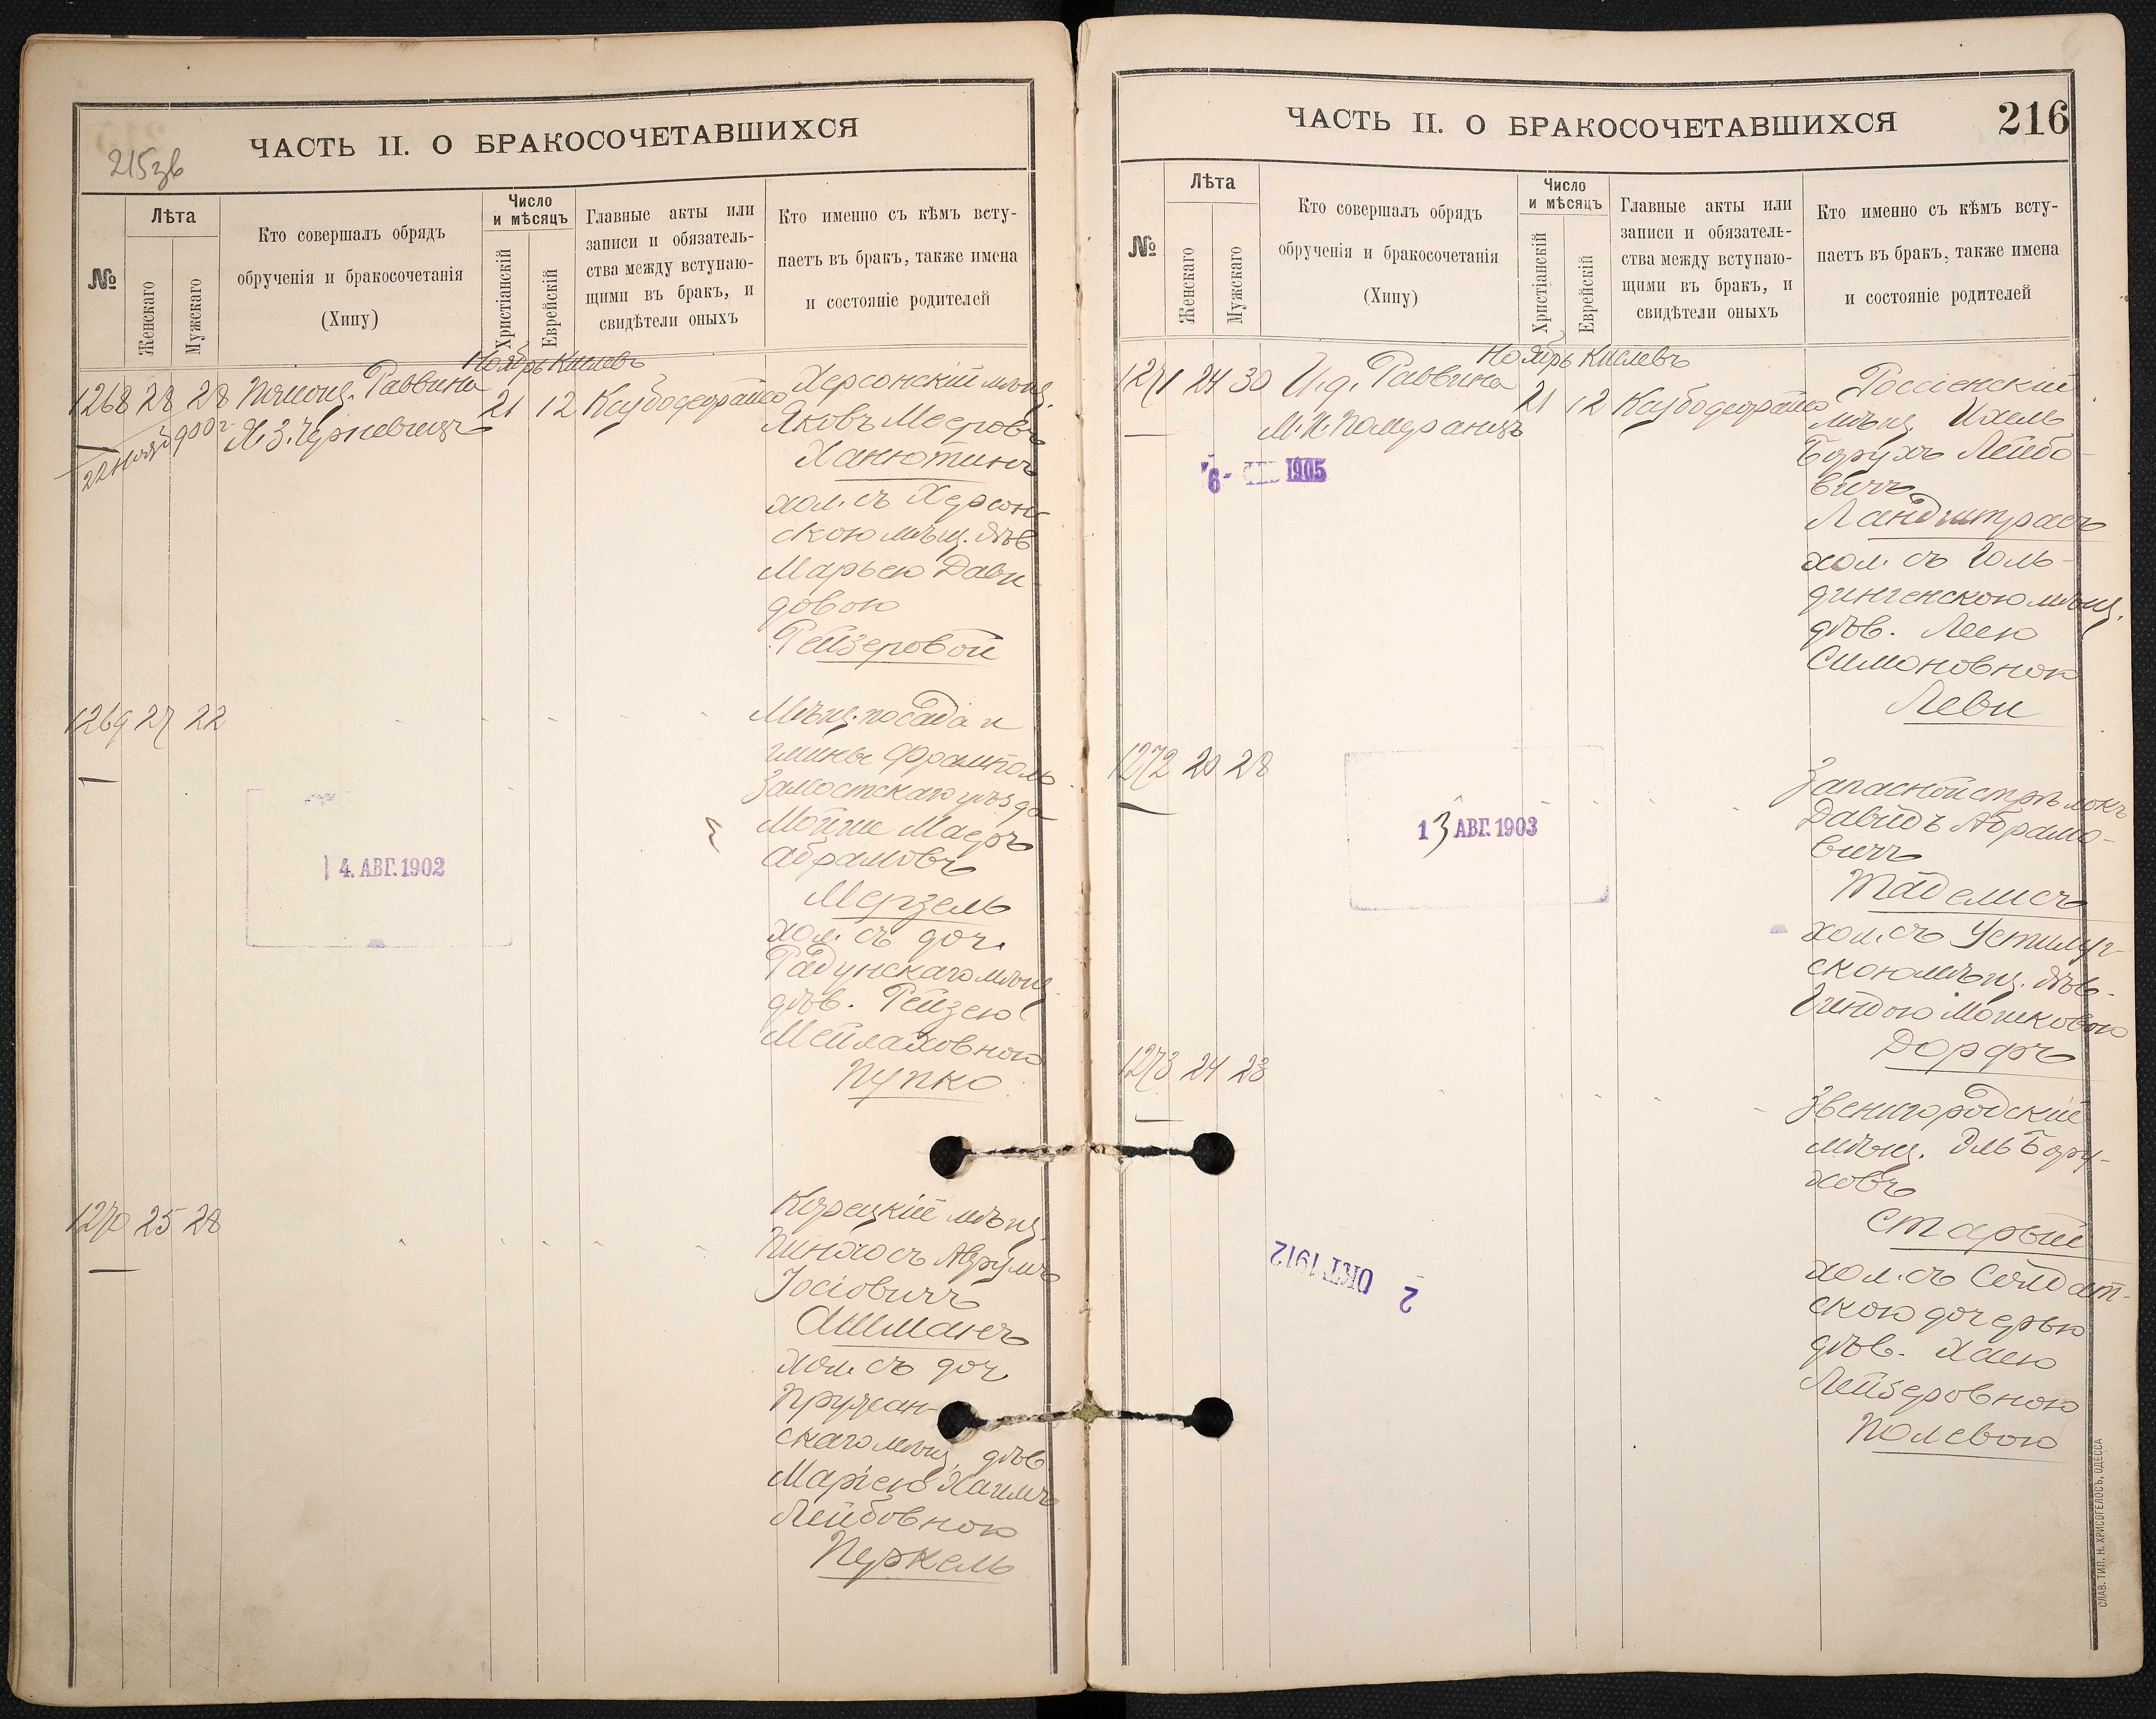 ЧАСТЬ II. О БРАКОСОЧЕТАВШИХСЯ
215зв
№
Лѣта
Женскаго
Мужскаго
Кто совершалъ обрядъ
обрученія и бракосочетанія
(Хипу)
Число
и мѣсяцъ
Христіанскій
Еврейскій
Главные акты или
записи и обязатель-
ства между вступаю-
щими въ бракъ, и
свидѣтели оныхъ
Кто именно съ кѣмъ всту-
паетъ въ бракъ, также имена
и состояніе родителей
Ноябрь Кислевъ
1268 28 28 Помощ. Раввина
21 12
Херсонскій мѣщ.
Яковъ Мееровъ
Ханютинъ
хол. съ Херсон
скою мѣщ. дѣв
Марьею Дави-
довою
Рейзеровой
1269 27 22
Мѣщ. посада и
гмины Фрамполь
Замостскаго уѣзда
Мойше Маеръ
Абрамовъ
Мерзель
хол. съ доч.
Радунскаго мѣщ.
дѣв. Рейзею
Мейлаховною
Пупко
4. АВГ. 1902
1270 25 28
Корецкій мѣщ.
Пинхосъ Аврумъ
Іосіовичъ
Ашманъ
хол. съ доч
Пружан-
скаго мѣщ. дѣв
Маріею Хаимъ
Лейбовною
Перкель
ЧАСТЬ II. О БРАКОСОЧЕТАВШИХСЯ
216
№
Лѣта
Женскаго
Мужскаго
Кто совершалъ обрядъ
обрученія и бракосочетанія
(Хипу)
Число
и мѣсяцъ
Христіанскій
Еврейскій
Главные акты или
записи и обязатель-
ства между вступаю-
щими въ бракъ, и
свидѣтели оныхъ
Кто именно съ кѣмъ всту-
паетъ въ бракъ, также имена
и состояніе родителей
Ноябрь Кислевъ
1271 24 30 И.д. Раввина
М. И. Померанцъ
21 12
Россіенскій
мѣщ. Ихель
Борухъ Лейбо-
вичъ
Ландштрасъ
хол. съ Голь-
дингенскою мѣщ.
дѣв. Леею
Симоновною
Леви
1905
1272 20 28
Запасной стрѣлокъ
Давидъ Абрамо-
вичъ
Таделисъ
хол. съ Устилуг-
скою мѣщ. дѣв.
Гиндою Мошковою
Дорфъ
13 АВГ. 1903
1273 24 23
Звенигородскій
мѣщ. Эль Бору-
ховъ
Старый
хол. съ Солдат-
скою дочерью
дѣв. Хаею
Лейзеровною
Полевою
2 ОКТ 1912
СЛАВ. ТИП. Н. ХРИСОГЕЛОСЪ, ОДЕССА